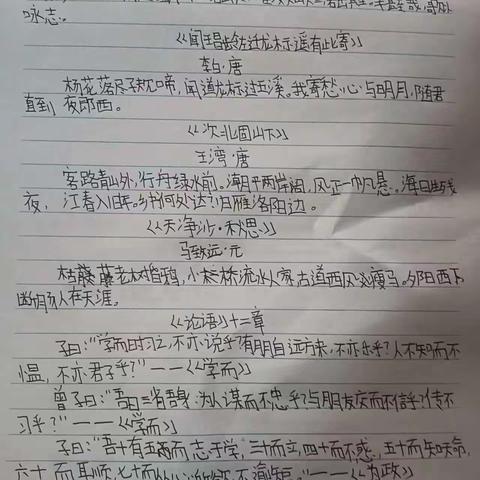 咏志。
《闻王昌龄左迁龙标遥有此寄》
李白·唐
杨花落尽子规啼,闻道龙标过五溪。我寄愁心与明月,随君
直到夜郎西。
《次北固山下》
王湾·唐
客路青山外,行舟绿水前。潮平两岸阔,风正一帆悬。海日生残
夜,江春入旧年。乡书何处达?归雁洛阳边。
《天净沙·秋思》
马致远·元
枯藤老树昏鸦,小桥流水人家,古道西风瘦马。夕阳西下
断肠人在天涯。
《论语》十二章
子曰:"学而时习之,不亦说乎?有朋自远方来,不亦乐乎?人不知而不
愠,不亦君子乎?"——《学而》
曾子曰:"吾日三省吾身:为人谋而不忠乎?与朋友交而不信乎?传不
习乎?"——《学而》
子曰:"吾十有五而志于学,三十而立,四十而不惑,五十而知天命,
六十而耳顺,七十而从心所欲,不逾矩。"——《为政》